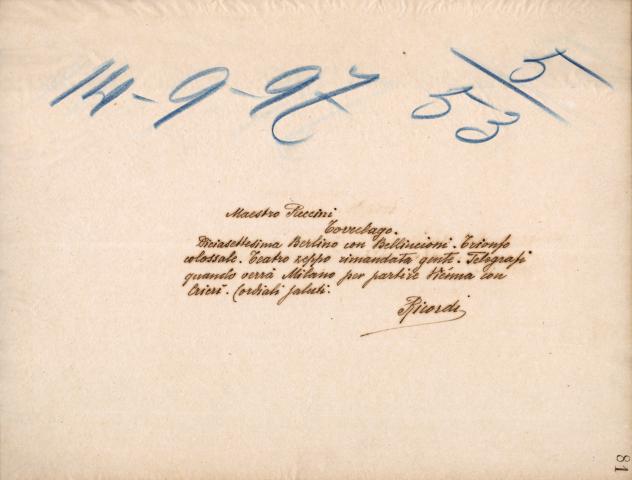 14-9-97 5/5
53
Maestro Puccini
Torrelago.
Diciasettesima Berlino con Bellincioni. Trionfo
colossale. Teatro zeppo rimandata gente. Telegrafi
quando verrà Milano per partire Vienna con
Cordiali saluti.
Ricordi
81